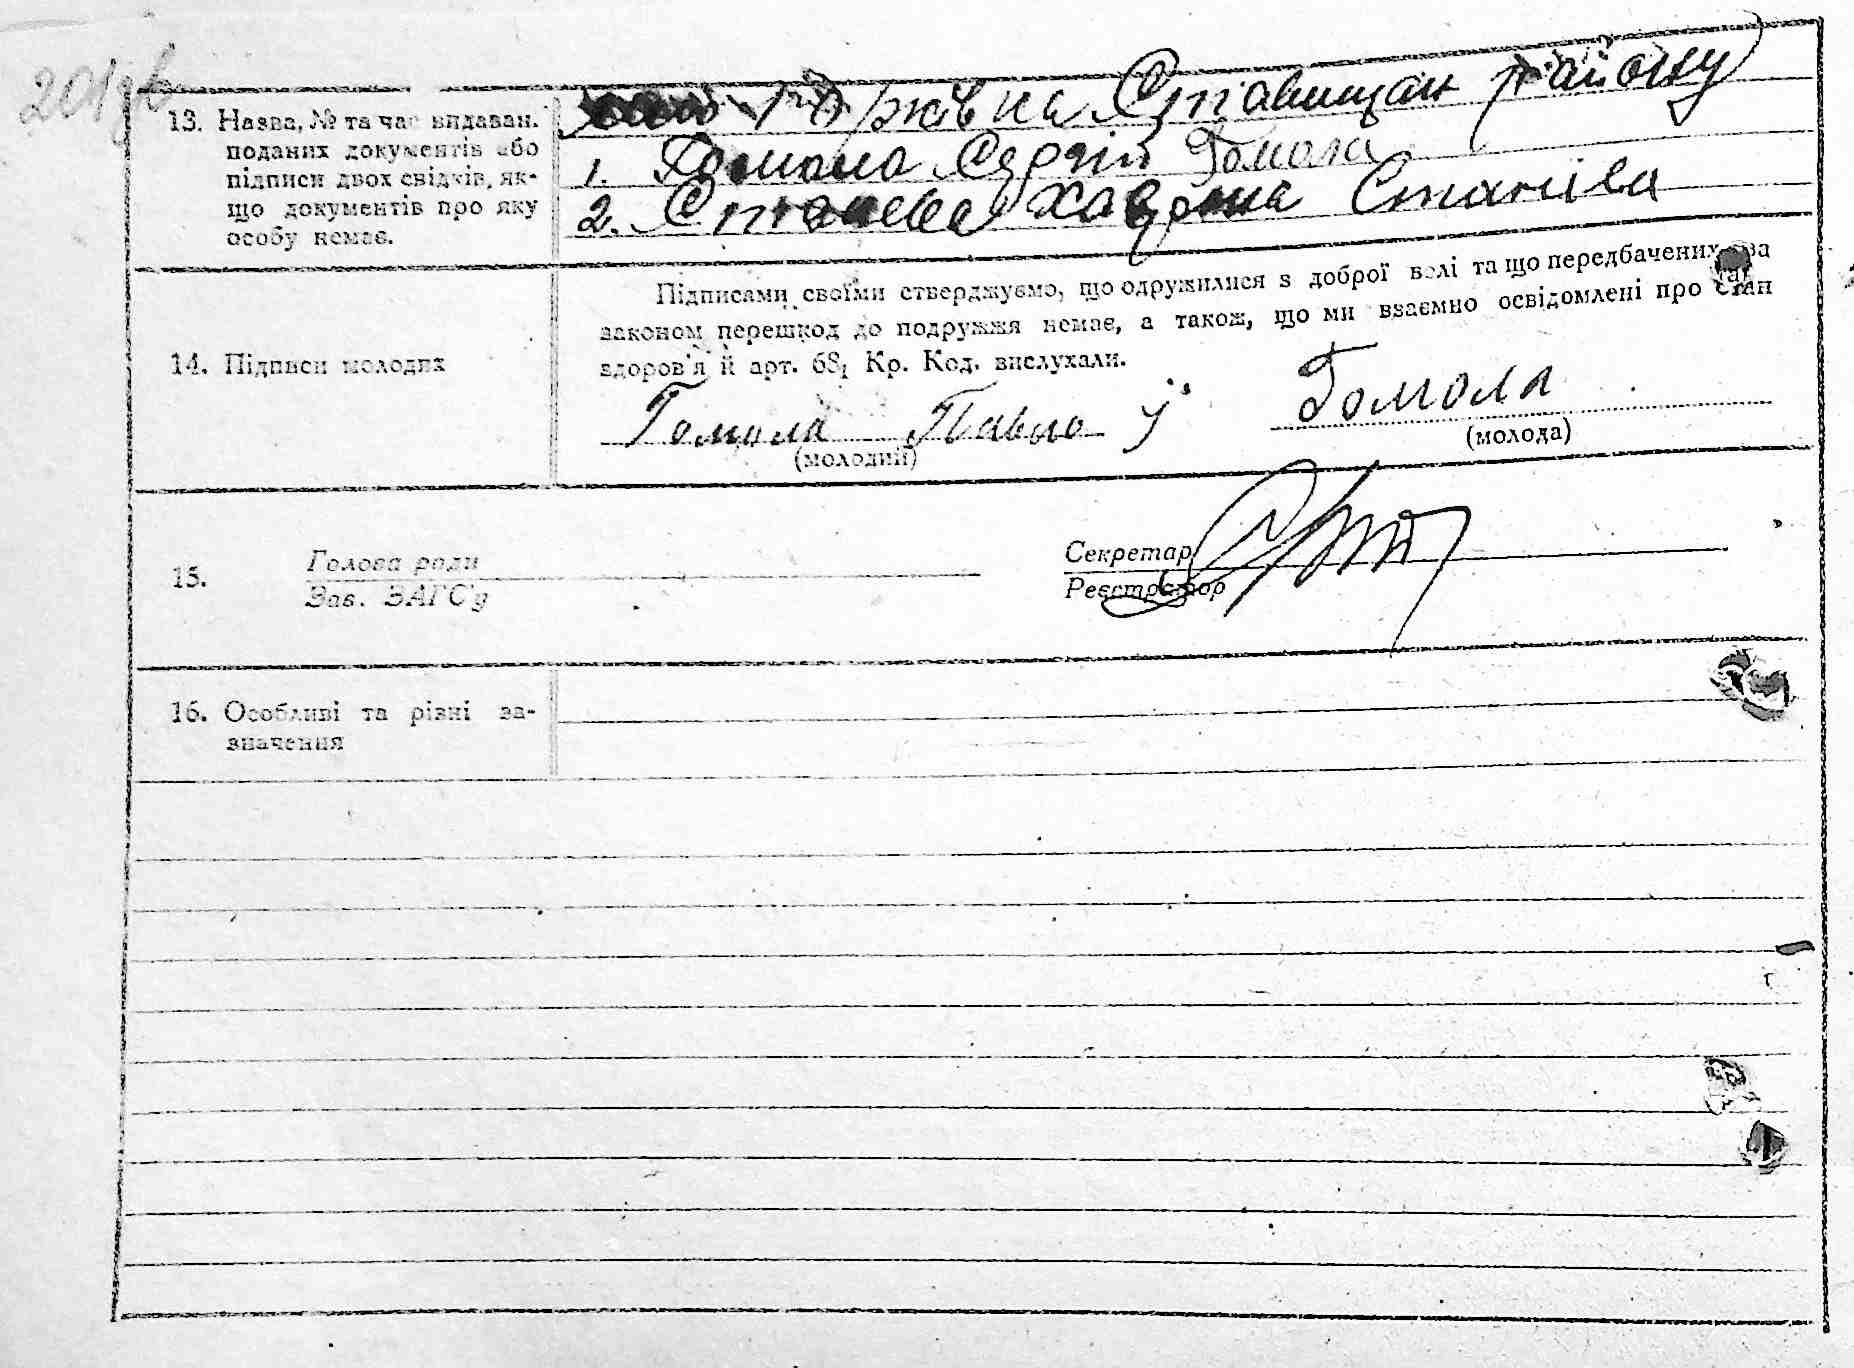 201зв
13. Назва, № та час видаван. поданих документів або підписи двох свідків, якщо документів про яку особу немає.
Ставищан району
1. Гомола Сергій Гомола
2. Станіева Станіева
14. Підписи молодих
Підписами своїми стверджуємо, що одружилися з доброї волі та що передбачених за
законом перешкод до подружжя немає, а також, що ми взаємно освідомлені про стан
здоров'я й арт. 68₁ Кр. Код. вислухали.
Гомола Павло Гомола
(молодий) (молода)
15. Голова ради Секретар
Зав. ЗАГС'у Реєстратор
16. Особливі та різні за-
значення